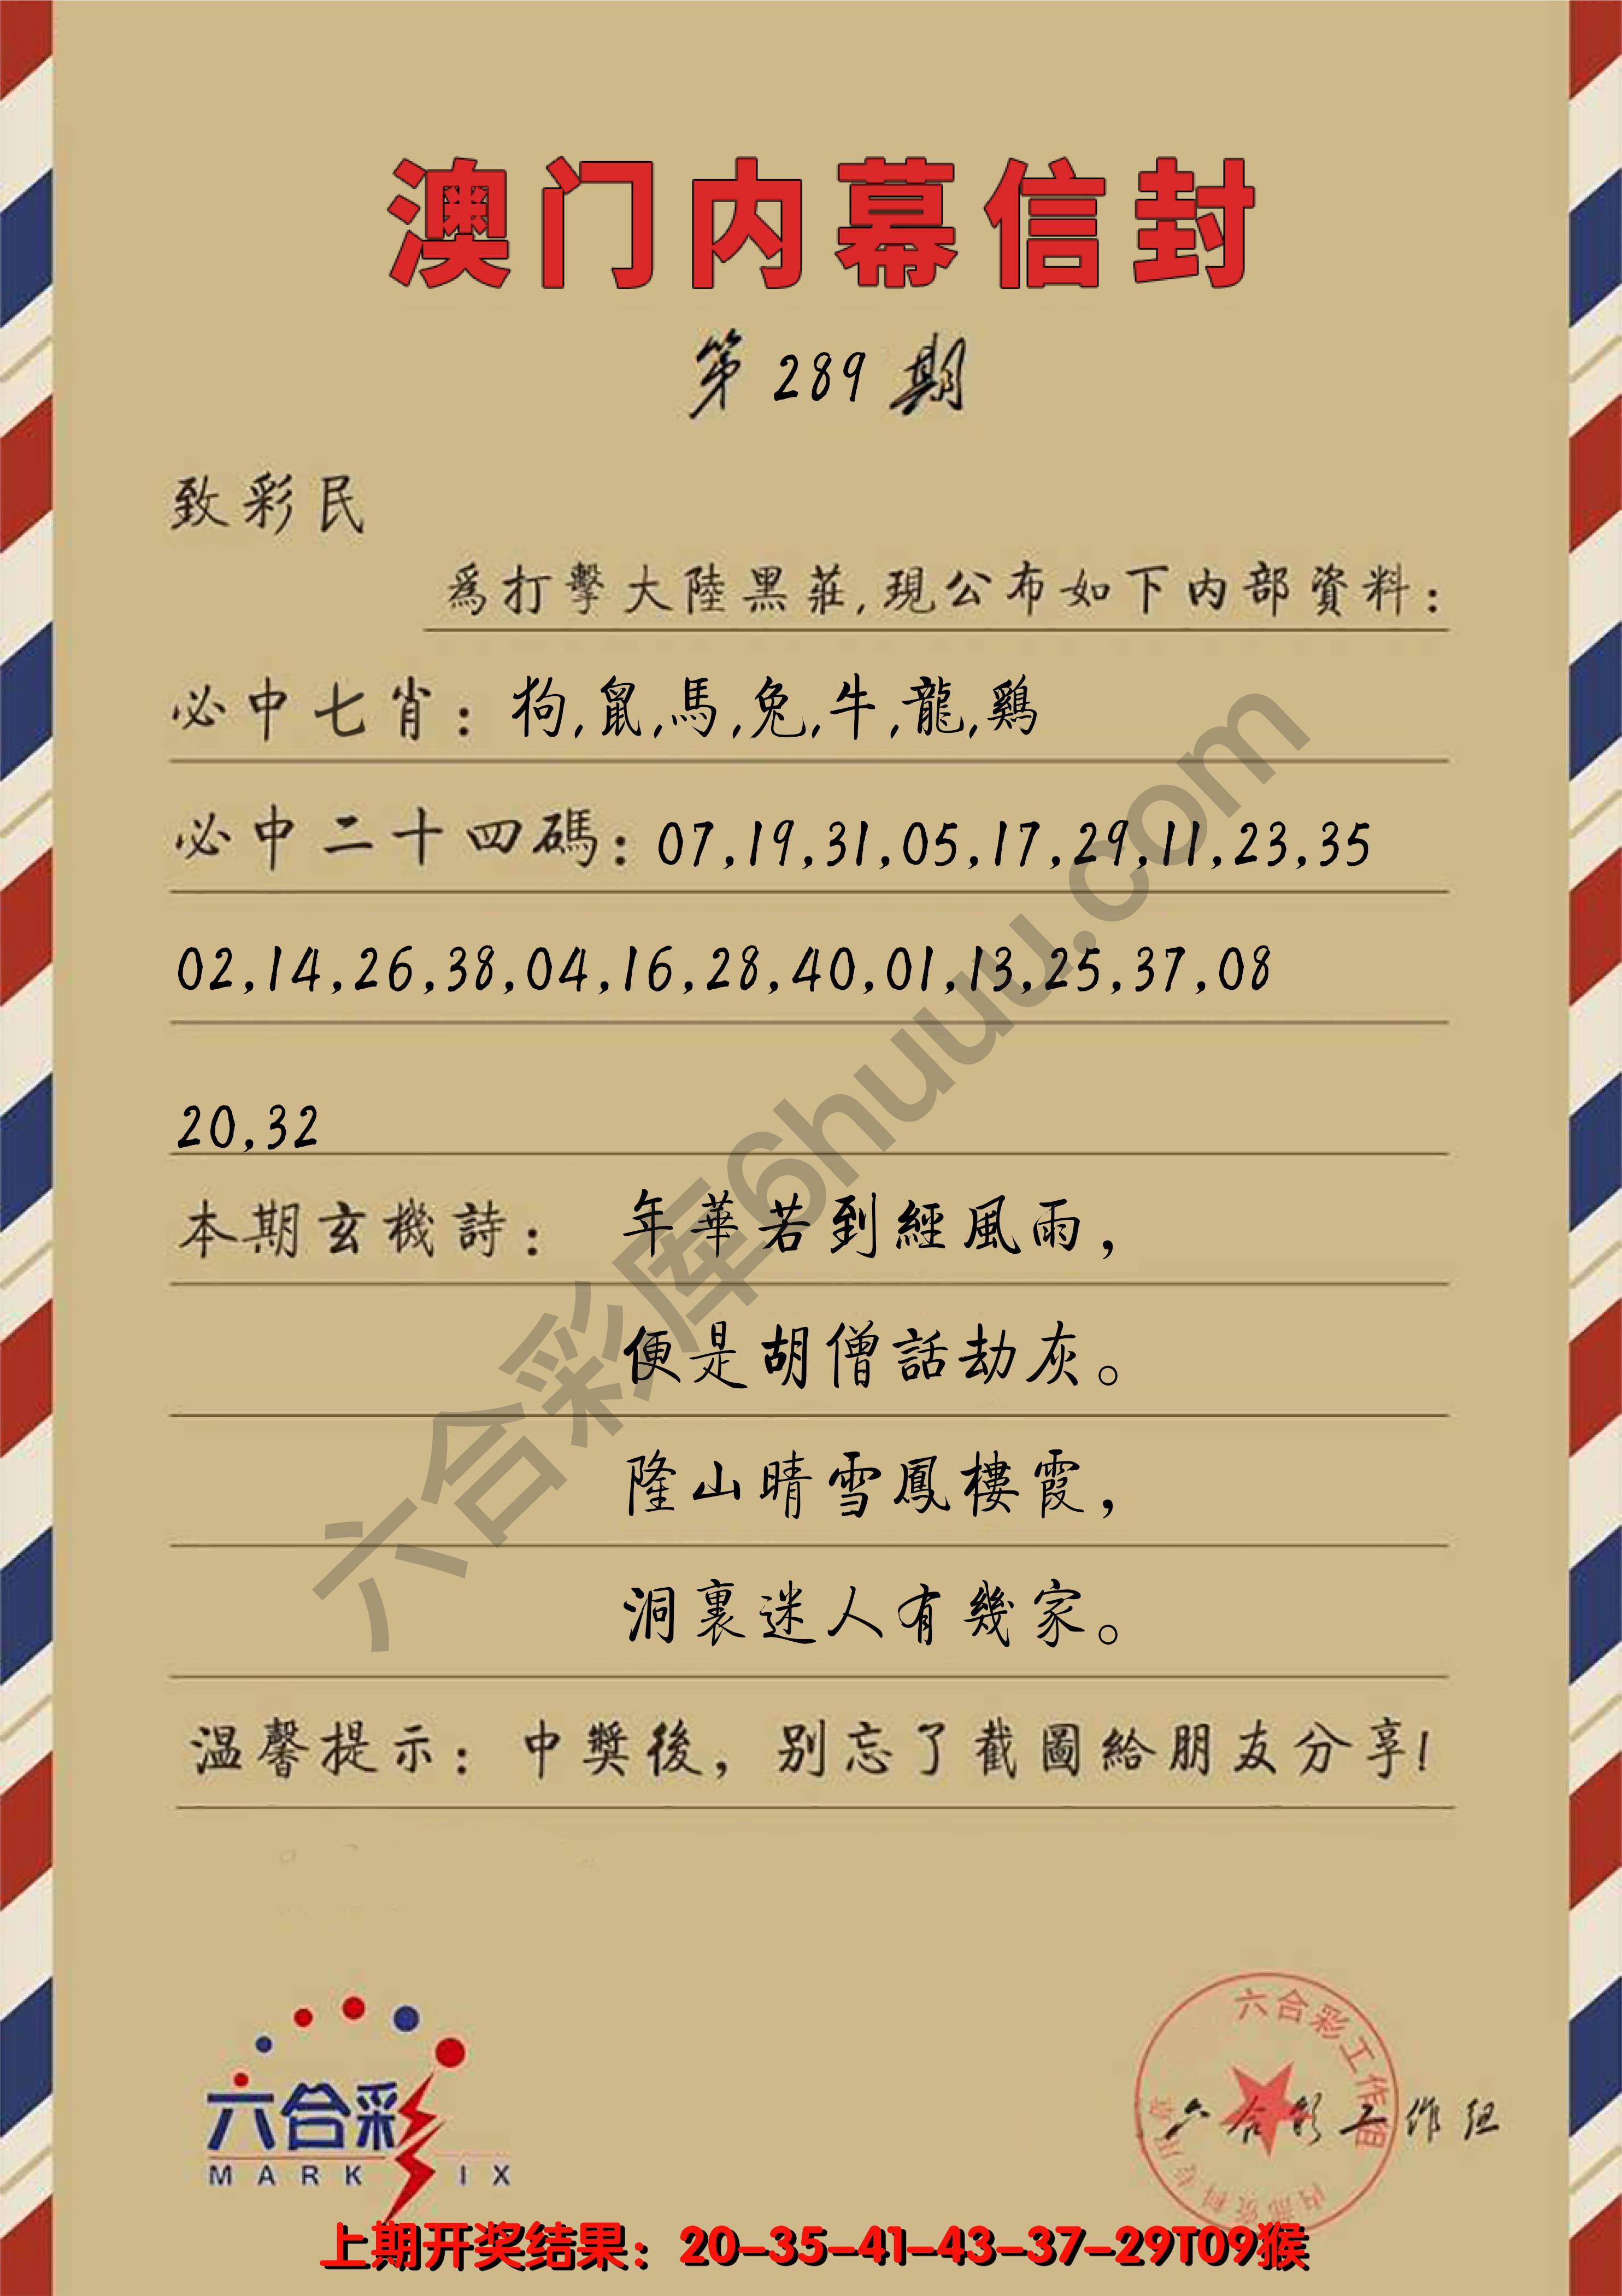 澳门内幕信封
第289期
致彩民
爲打擊大陸黑莊,現公布如下内部資料:
必中七肖:狗,鼠,馬,兔,牛,龍,鷄
必中二十四碼:07,19,31,05,17,29,11,23,35
02,14,26,38,04,16,28,40,01,13,25,37,08
20,32
本期玄機詩: 年華若到經風雨,
便是胡僧話劫灰。
隆山晴雪鳳樓霞,
洞裏迷人有幾家。
温馨提示:中獎後,别忘了截圖給朋友分享!
六合彩库6huuu.com
六合彩
MARK IX
六合彩工作组
内部资料专用章
六合彩工作组
上期开奖结果:20-35-41-43-37-29T09猴